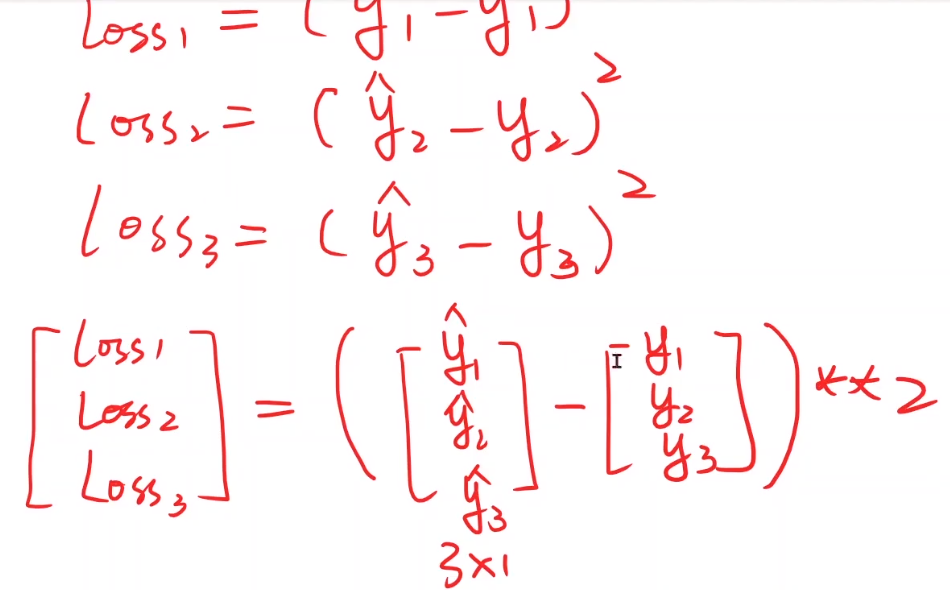 Loss₁ = (ŷ₁ - y₁)
Loss₂ = (ŷ₂ - y₂)²
Loss₃ = (ŷ₃ - y₃)²
[Loss₁ Loss₂ Loss₃] = ([ŷ₁ ŷ₂ ŷ₃] - [y₁ y₂ y₃]) ** 2
3×1